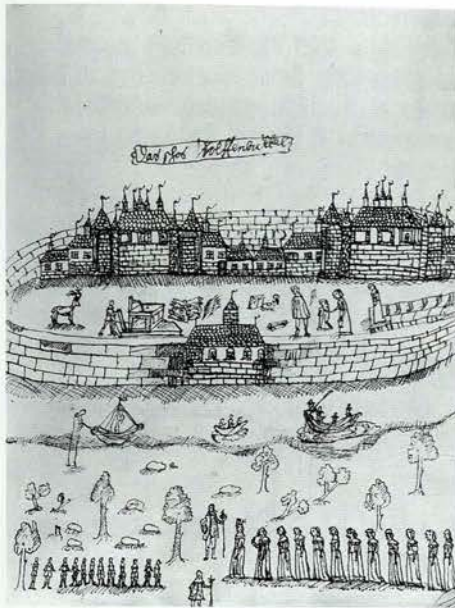 Das schos Wolffenbuttel